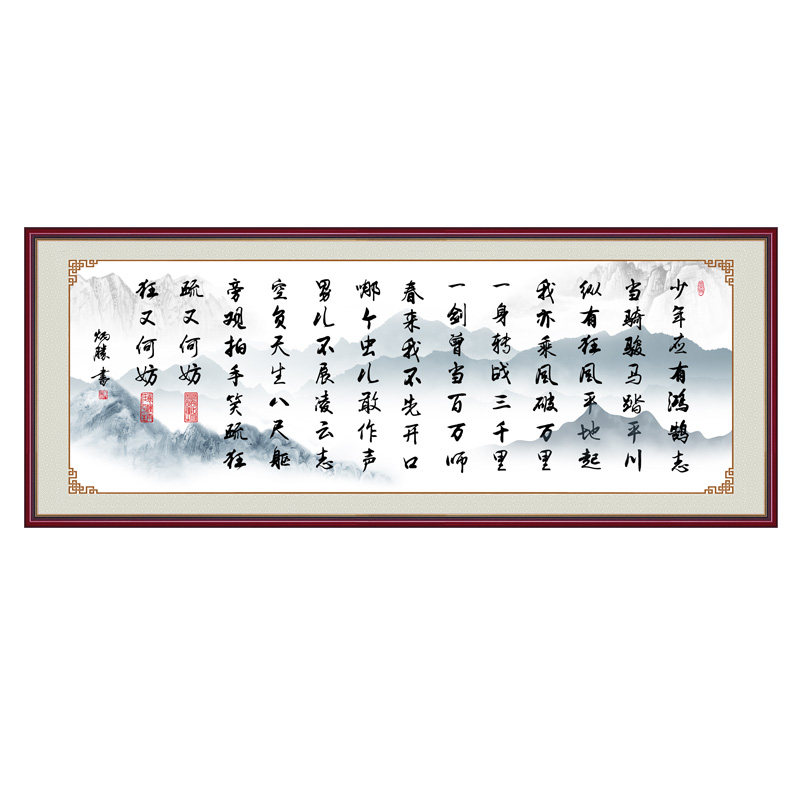 少年应有鸿鹄志
当骑骏马踏平川
纵有狂风平地起
我亦乘风破万里
一身转战三千里
一剑曾当百万师
春来我不先开口
哪个虫儿敢作声
男儿不展凌云志
空负天生八尺躯
旁观拍手笑疏狂
疏又何妨
狂又何妨
炳胜书